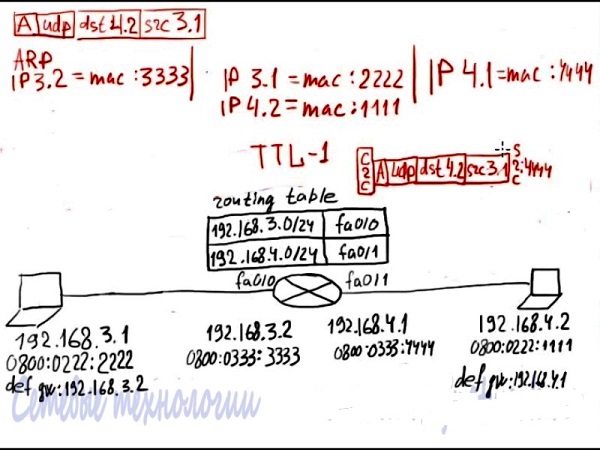 A udp dst 4.2 src 3.1
ARP
IP 3.2 = mac : 3333
IP 3.1 = mac : 2222
IP 4.2 = mac : 1111
IP 4.1 = mac : 4444
TTL-1
A udp dst 4.2 src 3.1
routing table
192.168.3.0/24 fa0/0
192.168.4.0/24 fa0/1
fa0/0 fa0/1
192.168.3.1 192.168.3.2 192.168.4.1 192.168.4.2
0800:0222:2222 0800:0333:3333 0800:0333:4444 0800:0222:1111
def gw: 192.168.3.2 def gw: 192.168.4.1
Сетевые технологии